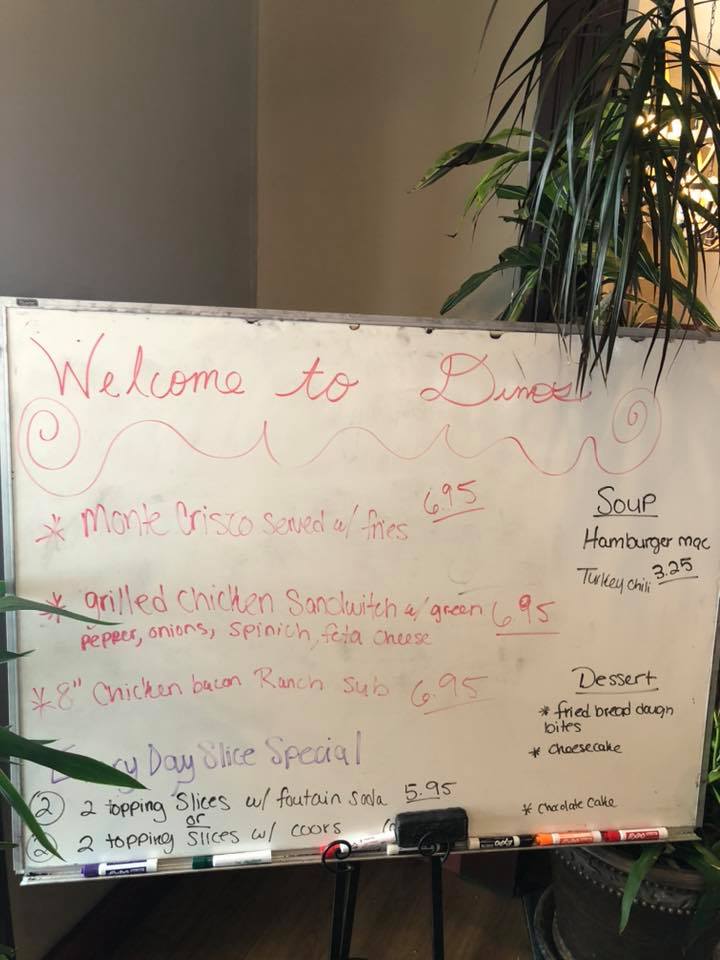 Welcome to Dinos
* Monte Crisco served w/ fries 6.95
* grilled chicken Sandwitch w/ green 6.95
pepper, onions, spinich, feta cheese
* 8" Chicken bacon Ranch Sub 6.95
Every Day Slice Special
② 2 topping Slices w/ foutain soda 5.95
or
② 2 topping Slices w/ coors
Soup
Hamburger mac
Turkey chili 3.25
Dessert
* fried bread dough
bites
* cheesecake
* Chocolate Cake
EXPO